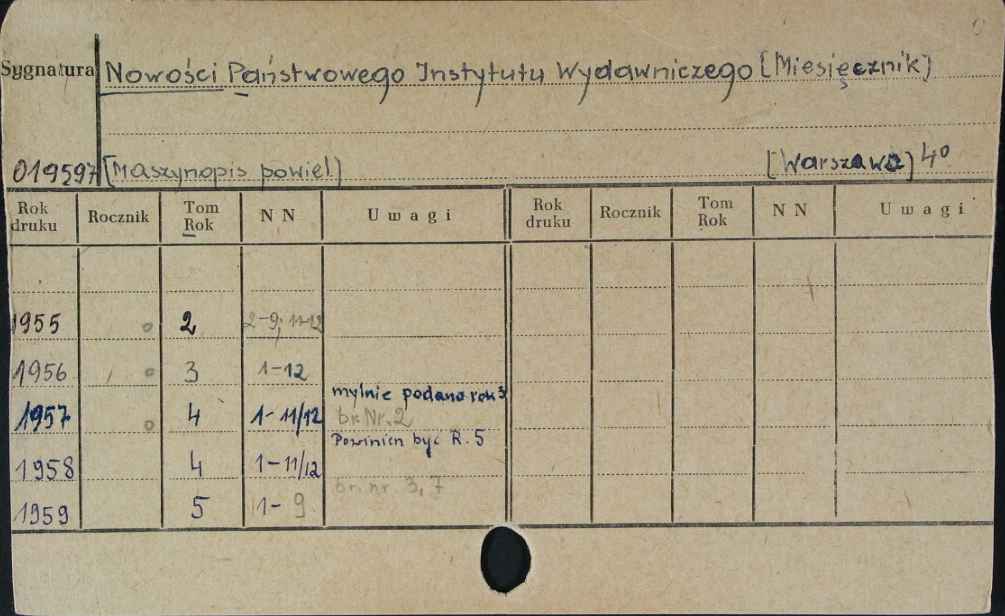 Sygnatura Nowości Państwowego Instytutu Wydawniczego [Miesięcznik]
019597 [Maszynopis powiel.] [Warszawa] 4°
Rok druku Rocznik Tom Rok N N Uwagi Rok druku Rocznik Tom Rok N N Uwagi
1955 2 2-9; 11-12
1956 3 1-12
mylnie podano rok 3
1957 4 1-11/12 br. Nr. 2
Powinien być R. 5
1958 4 1-11/12
br. nr. 3, 7
1959 5 1-9